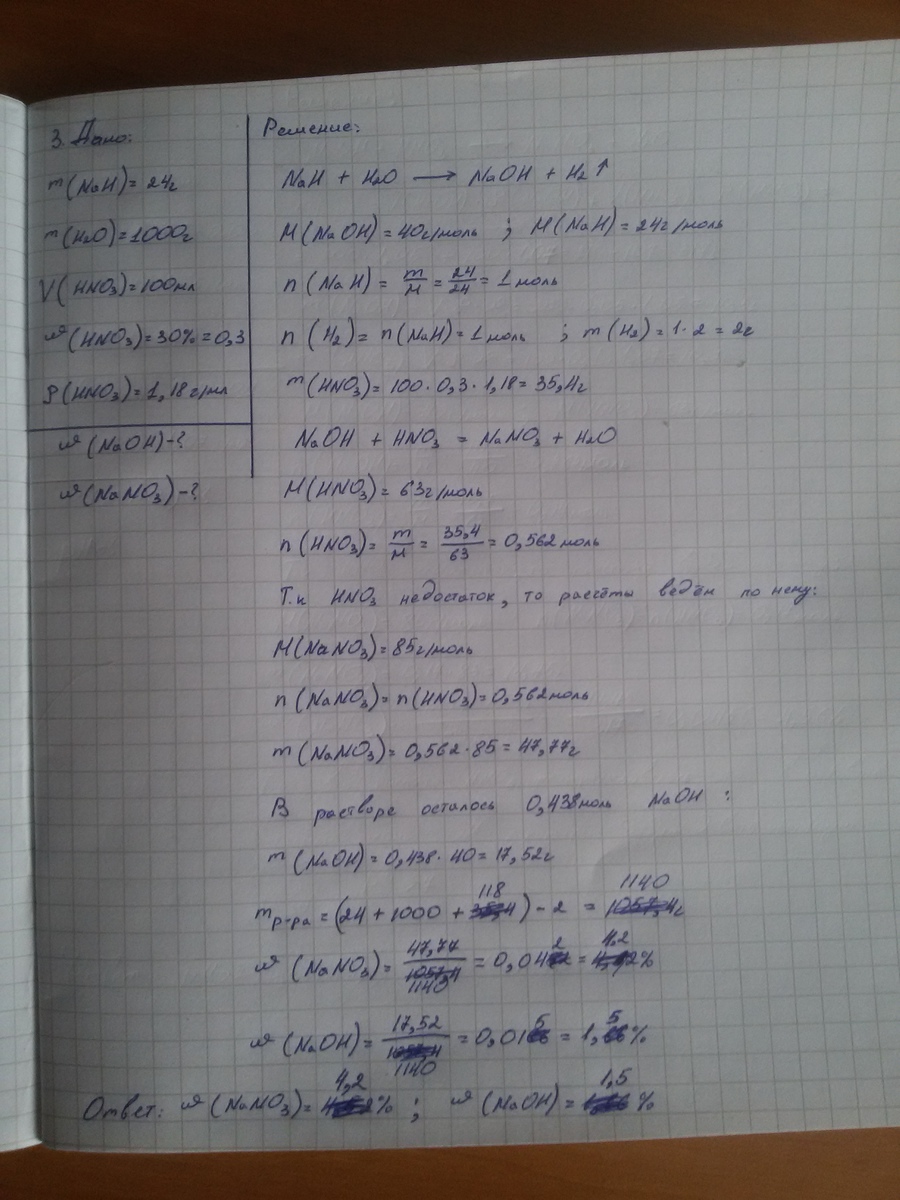 3. Дано:
m(NaH) = 24г
m(H₂O) = 1000г
V(HNO₃) = 100мл
ω(HNO₃) = 30% = 0,3
ρ(HNO₃) = 1,18 г/мл
ω(NaOH) - ?
ω(NaNO₃) - ?
Решение:
NaH + H₂O → NaOH + H₂↑
M(NaOH) = 40г/моль ; M(NaH) = 24г/моль
n(NaH) = m/M = 24/24 = 1 моль
n(H₂) = n(NaH) = 1 моль ; m(H₂) = 1·2 = 2г
m(HNO₃) = 100·0,3·1,18 = 35,4г
NaOH + HNO₃ = NaNO₃ + H₂O
M(HNO₃) = 63г/моль
n(HNO₃) = m/M = 35,4/63 = 0,562 моль
Т.к HNO₃ недостаток, то расчёты ведём по нему:
M(NaNO₃) = 85г/моль
n(NaNO₃) = n(HNO₃) = 0,562моль
m(NaNO₃) = 0,562·85 = 47,77г
В растворе осталось 0,438моль NaOH :
m(NaOH) = 0,438·40 = 17,52г
mр-ра = (24 + 1000 + 118) - 2 = 1140 г
ω(NaNO₃) = 47,77/1140 = 0,042 = 4,2%
ω(NaOH) = 17,52/1140 = 0,015 = 1,5%
Ответ: ω(NaNO₃) = 4,2% ; ω(NaOH) = 1,5%